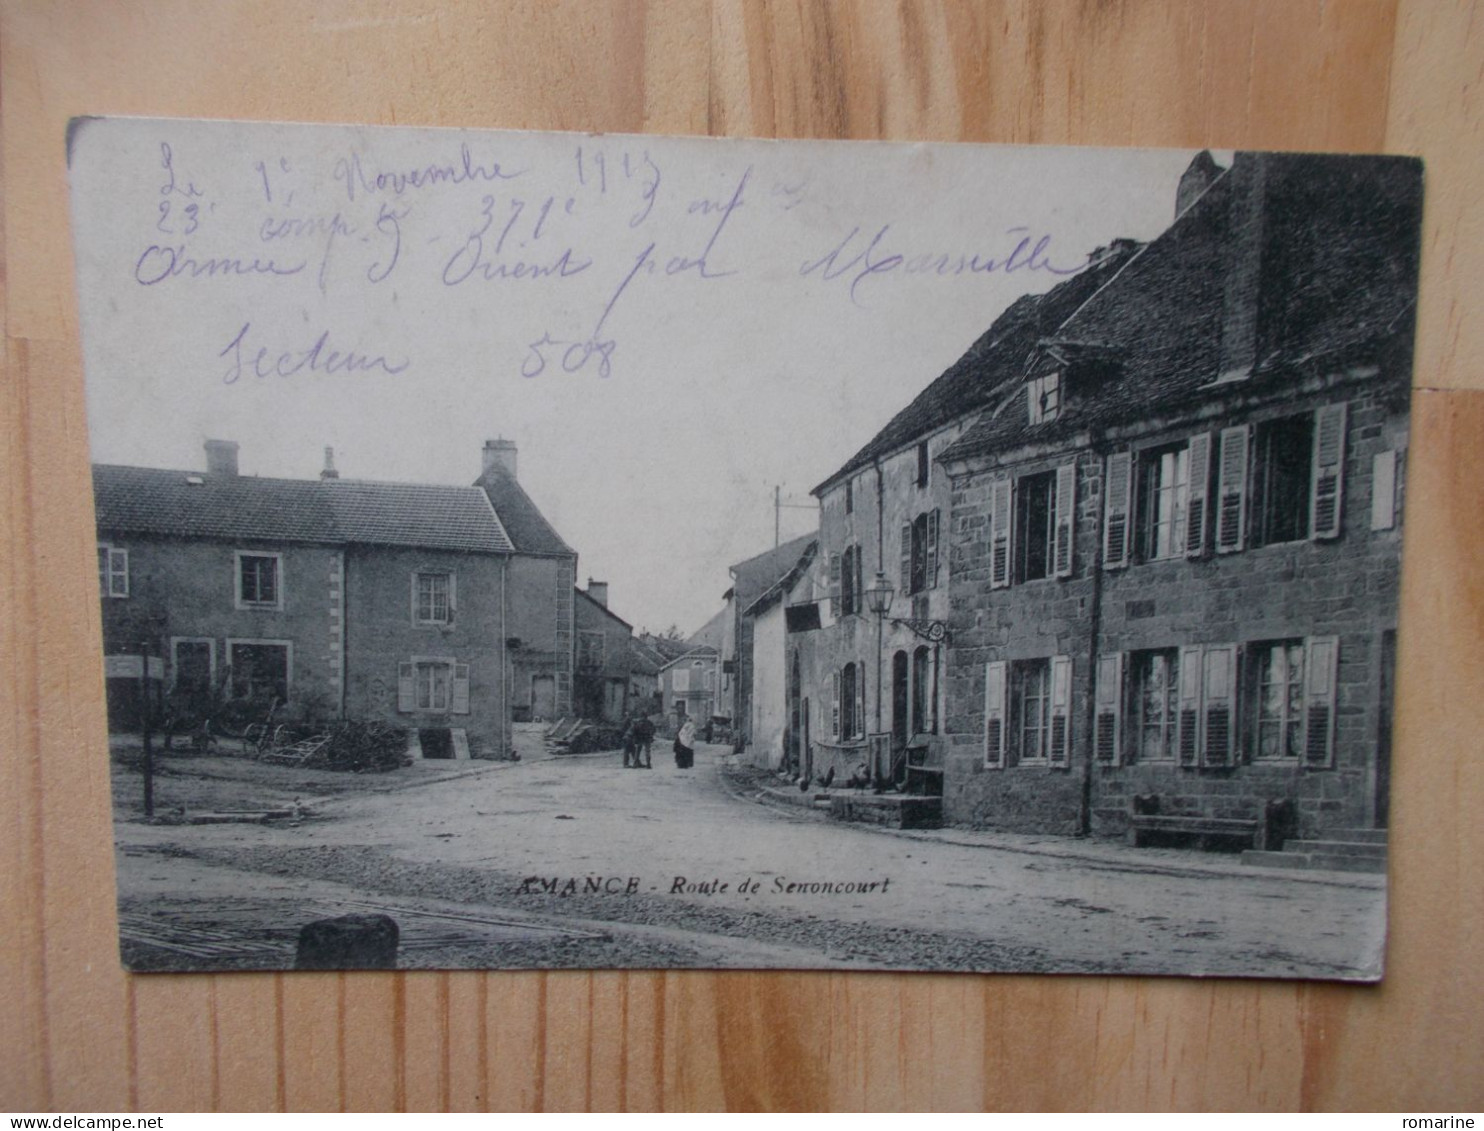 Le 1e Novembre 1915
23e comp 371e Inf
Armée d'Orient par Marseille
Secteur 508
AMANCE - Route de Senoncourt
www.delcampe.net
romarine